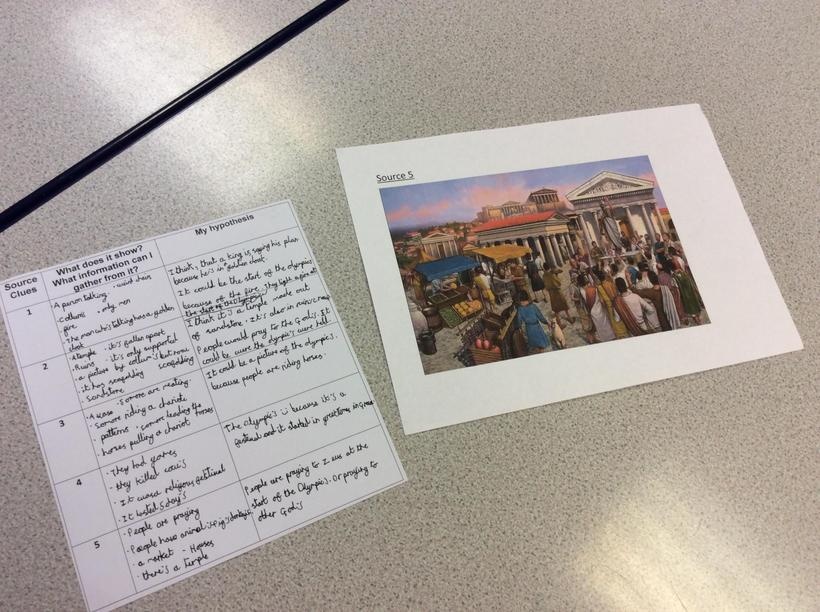 Source 5
Source
Clues
What does it show?
What information can I
gather from it?
My hypothesis
1
·A person talking. · weird chairs
·collums · only men
fire
·The man who's talking has a golden
cloak
I think, that a king is saying his plan
because he's in golden cloak.
It could be the start of the olympics
because of the fire. They light a fire at
the start of the Olympics
2
·A temple · it's fallen apart
·Ruins · it's only supported
· a picture by collums but now
· it has scaffolding scaffolding
Sandstone
I think it's a temple made out
of sandstone. It's also in ruins now
People would pray to the God's. It
could be were the olympics were held
3
·A vase · Some are resting.
·Some riding a chariot
· patterns · some leading the
· horses pulling a chariot horses
It could be a picture of the olympics.
because people are riding horses.
4
·They had games
· they killed cow's
· It was a religous festinal
· It lasted 5 day's
The Olympic's because it's a
festinal and it started in
5
· People are praying
·People have animal's Pig's donkey's
· a market - Houses
· there's a temple
People are praying to Zeus at the
start of the Olympic's. Or praying to
other God's